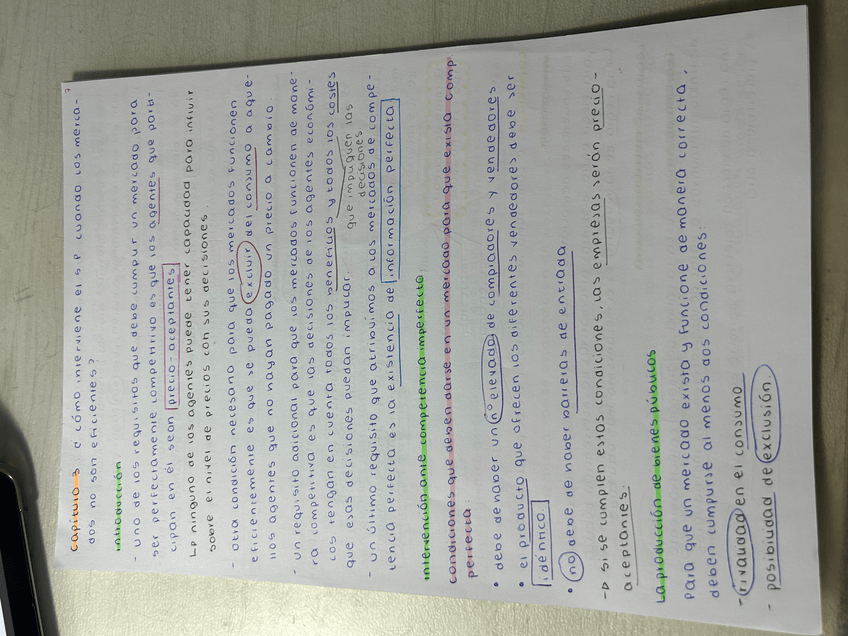 Capítulo 3: ¿ cómo interviene el s.p cuando los merca-
dos no son eficientes?
introducción.
- uno de los requisitos que debe cumplir un mercado para
ser perfectamente competitivo es que los agentes que parti-
cipan en él sean precio-aceptantes
↳ ninguno de los agentes puede tener capacidad para influir
sobre el nivel de precios con sus decisiones.
- otra condición necesaria para que los mercados funcionen
eficientemente es que se pueda excluir del consumo a aque-
llos agentes que no hayan pagado un precio a cambio.
- un requisito adicional para que los mercados funcionen de mane-
ra competitiva es que las decisiones de los agentes económi-
cos tengan en cuenta todos los beneficios y todos los costes
que esas decisiones puedan implicar. que impliquen las
decisiones
- un último requisito que atribuimos a los mercados de compe-
tencia perfecta es la existencia de información perfecta
intervención ante competencia imperfecta.
condiciones que deben darse en un mercado para que exista comp.
perfecta
• debe de haber un nº elevado de compradores y vendedores.
• el producto que ofrecen los diferentes vendedores debe ser
idéntico
• no debe de haber barreras de entrada.
-> si se cumplen estas condiciones, las empresas serán precio-
aceptantes.
La producción de bienes públicos
para que un mercado exista y funcione de manera correcta,
deben cumplirse al menos dos condiciones:
- rivalidad en el consumo
- posibilidad de exclusión.